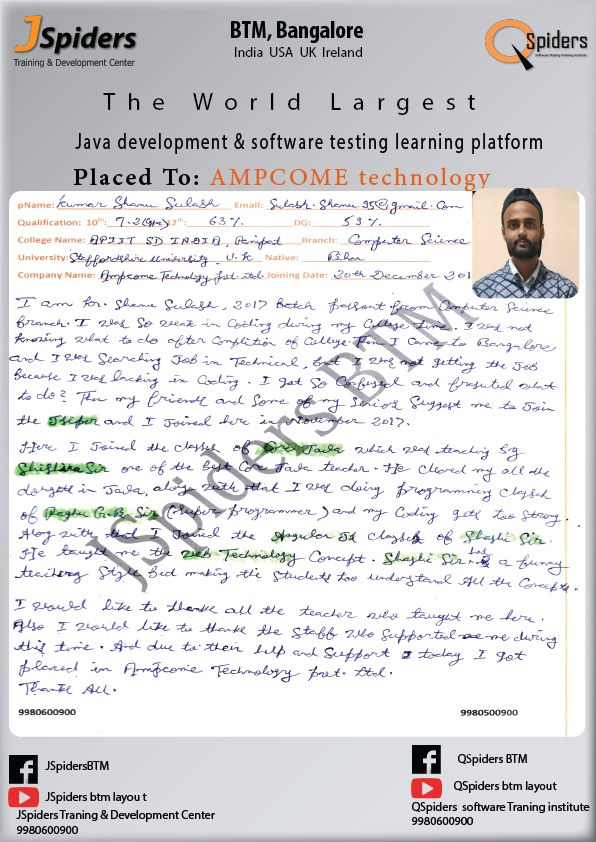 JSpiders
Training & Development Center
BTM, Bangalore
India USA UK Ireland
QSpiders
Software Testing Training Institute
The World Largest
Java development & software testing learning platform
Placed To: AMPCOME technology
pName: Kumar Shanu Sulabh Email: Sulabh.Shanu95@gmail.com
Qualification: 10th: 7.2(CGPA) 12th: 63% DG: 59%
College Name: APIIT SD INDIA, Panipat Branch: Computer Science
University: Staffordshire University, U.K Native: Bihar
Company Name: Ampcome Technology Pvt. Ltd. Joining Date: 20th December 201
I am Kr. Shanu Sulabh, 2017 Batch passout from Computer Science
Branch. I was so weak in Coding during my College time. I was not
knowing what to do after Completion of College. Then I came to Bangalore
and I was Searching Job in Technical, but I was not getting the Job
because I was lacking in Coding. I got So Confused and what
to do? Then my friends and Some of my Seniors Suggest me to Join
the and I Joined here in November 2017.
Here I Joined the classes of Core Java which was teaching by
Sir one of the best Core Java teacher. He Cleared my all the
in Java, along with that I was doing programming Classes
of Raghu Sir (Super programmer) and my Coding gets too Strong.
Along with that I Joined the Angular Js classes of Shashi Sir.
He taught me the web Technology Concept. Shashi Sir has a funny
teaching Style but making the Students too understand All the Concepts.
I would like to thank all the teacher who taught me here.
Also I would like to thank the Staff who Supported me during
this time. And due to their help and Support today I got
placed in Ampcome Technology pvt. Ltd.
Thank All.
JSpiders BTM
9980600900 9980500900
JSpidersBTM
JSpiders btm layou t
JSpiders Traning & Development Center
9980600900
QSpiders BTM
QSpiders btm layout
QSpiders software Traning institute
9980600900